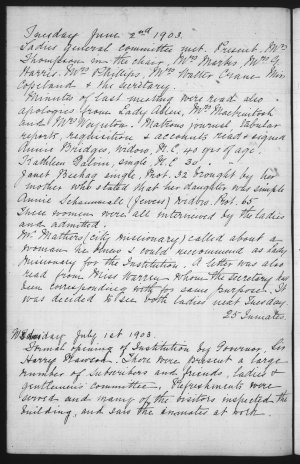 Tuesday June 2nd 1903.
Ladies general committee met. Present, Mrs
Thompson in the chair, Mrs Marks, Mrs G
Harris. Mrs Phillips, Mrs Walter Crane Miss
Copeland & the Secretary.
Minutes of last meeting were read also
apologies from Lady Allen, Mrs Mackintosh
and Mrs Wigulton. Matrons journal tabular
reports, requisition & accounts read & signed
Annie Bridges, widow, H.C. 40 yrs of age.
Kathleen Galvin, single, H.C. 30.
Janet single, Prot. 32 brought by her
mother who stated that her daughter was simple
Annie (Jewess) widow, Prot. 65
These women were all interviewed by the ladies
and admitted.
Mr Mathers (City Missionary) called about a
woman he knew & could recommend as Lady
Missionary for the Institution. A letter was also
read from Miss Warren whom the secretary has
been corresponding with for same purpose. It
was decided to see both ladies next Tuesday
25 Inmates.
Wednesday July 1st 1903.
Formal opening of Institution by Governor, Sir
Harry Rawson. There were present a large
number of Subscribers and friends, ladies &
gentlemens committee. Refreshments were
served and many of the visitors inspected the
building, and saw the inmates at work.